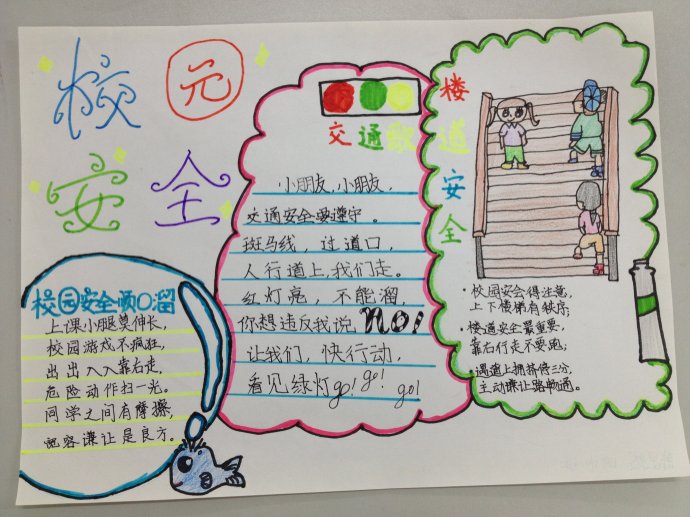 校园
安全
校园安全顺口溜
上课小腿莫伸长,
校园游戏不疯狂,
出出入入靠右走,
危险动作扫一光。
同学之间有摩擦,
宽容谦让是良方。
交通歌
小朋友,小朋友,
交通安全要遵守。
斑马线,过道口,
人行道上,我们走。
红灯亮,不能溜,
你想违反我说 NO!
让我们,快行动,
看见绿灯go! go! go!
楼道安全
·校园安会得注意,
上下楼梯有秩序;
·楼道安全最重要,
靠右行走不要跑;
·遇道上拥挤待三分,
主动谦让路畅通。